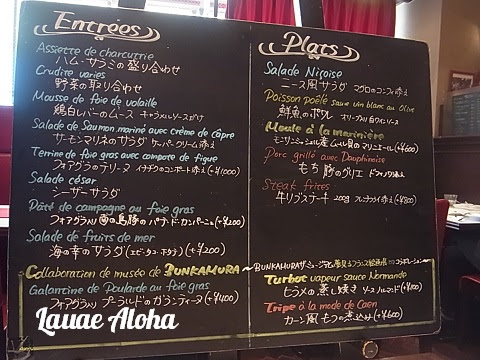 Entrées
Assiette de charcutrie
ハム・サラミの盛り合わせ
Crudite varies
野菜の取り合わせ
Mousse de foie de volaille
鶏白レバーのムース キャラメルソースがけ
Salade de Saumon mariné avec crème de Câpre
サーモンマリネのサラダ ケーパークリーム添え
Terrine de foie gras avec compote de figue
フォアグラのテリーヌ イチヂクのコンポート添え(+¥1000)
Salade césar
シーザーサラダ
Pâté de campagne au foie gras
フォアグラ入り の島豚のパテ・ド・カンパーニュ(+¥200)
Salade de fruits de mer
海の幸のサラダ(エビ・タコ・ホタテ)(+¥200)
Collaboration de musée de BUNKAMURA
Galantine de Poularde au foie gras
フォアグラ入り プーラルドのガランティーヌ(+¥400)
Plats
Salade Niçoise
ニース風サラダ マグロのコンフィ添え
Poisson poêlé sauce vin blanc au Olive
鮮魚のポワレ オリーブ入り白ワインソース
Moule à la marinière
モンサンミッシェル産ムール貝のマリニエール(+¥600)
Porc grillé avec Dauphinoise
もち豚のグリエ ドフィノワ添え
Steak frites
牛リブステーキ 200g フレンチフライ添え(+¥800)
BUNKAMURAザ・ミュージアム
Turbot vapeur sauce Normande
ヒラメの蒸し焼き ソースノルマンド(+¥100)
Tripe à la mode de Caen
カーン風もつの煮込み(+¥600)
Lauae Aloha